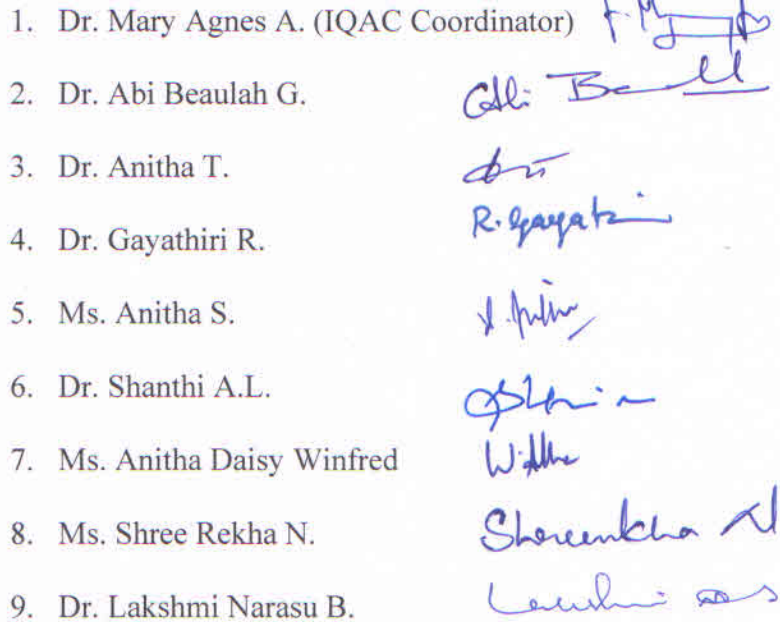 1. Dr. Mary Agnes A. (IQAC Coordinator)
2. Dr. Abi Beaulah G.
3. Dr. Anitha T.
4. Dr. Gayathiri R. R. Gayatri
5. Ms. Anitha S.
6. Dr. Shanthi A.L.
7. Ms. Anitha Daisy Winfred
8. Ms. Shree Rekha N.
9. Dr. Lakshmi Narasu B.